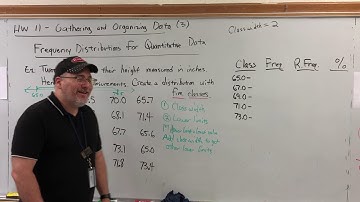 HW 11 - Gathering and Organizing Data (3)
Class width = 2
Frequency Distributions for Quantitative Data
Ex. Twen their height measured in inches.
Here urements. Create a distribution with
five classes
70.0 65.7
68.1 71.4
67.7 65.6
73.1 65.0
71.8 73.4
① Class width
② Lower limits
Add class width to get
other lower limits
Class Freq R. Freq. %
65.0-
67.0-
69.0-
71.0-
73.0-